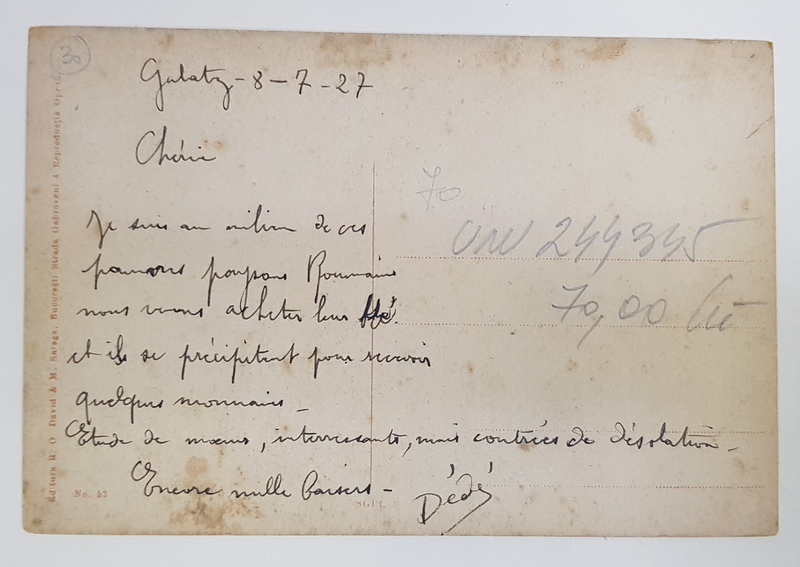 30
Galatz - 8 - 7 - 27
Chérie
Je suis au milieu de ces
pauvres paysans Roumains
nous venons acheter leur blé.
et ils se précipitent pour recevoir
quelques monnaies _
Etude de mœurs, interressants, mais contrées de désolation _
Encore mille baisers -
Dédé
70
244345
70,00
Editura R. O. David & M. Saraga, București Strada Gabroveni 4 Reproducția Oprită
No. 53